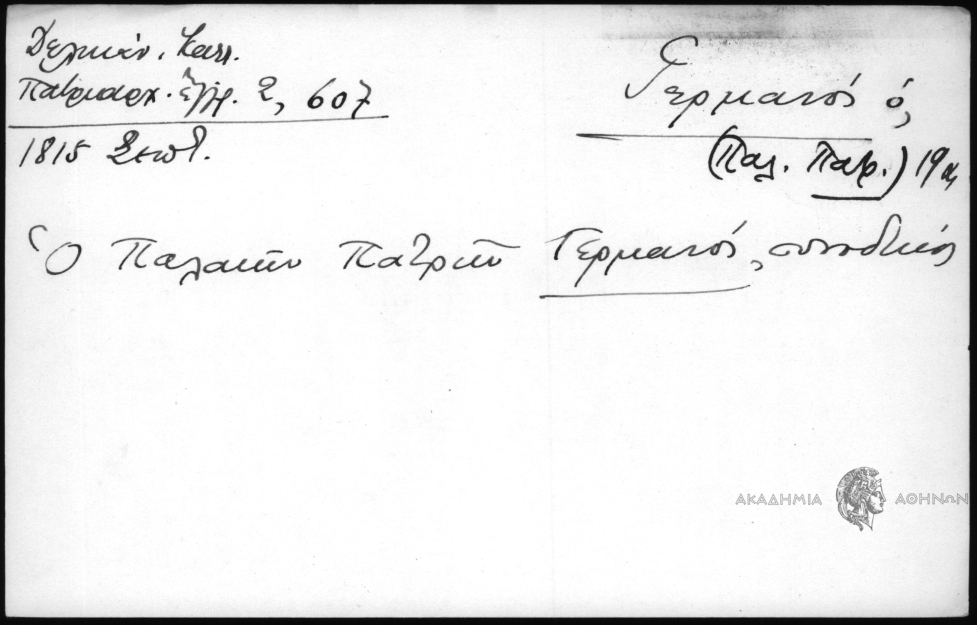 Δελικάν. Καλλ.
Πατριαρχ. Ἔγγρ. 2, 607
1815 Σεπτ.
Γερμανός ὁ,
(Παλ. Πατρ.) 19 α,
Ὁ Παλαιῶν Πατρῶν Γερμανός, συνοδικός
ΑΚΑΔΗΜΙΑ ΑΘΗΝΩΝ